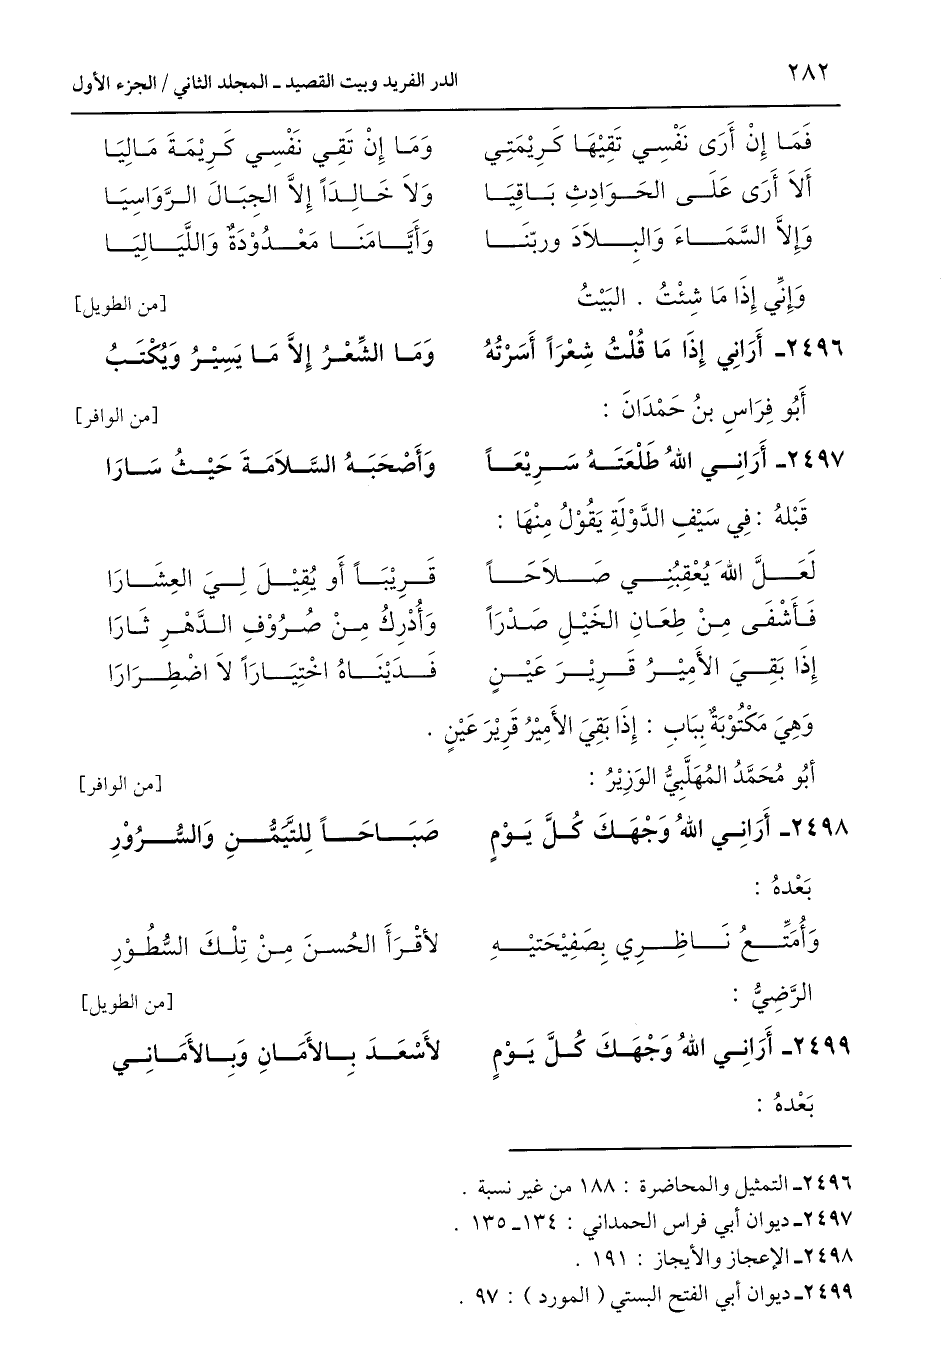 ٢٨٢
الدر الفريد وبيت القصيد ـ المجلد الثاني / الجزء الأول
فَمَا إِنْ أَرَى نَفْسِي تَقِيْهَا كَرِيْمَتِي وَمَا إِنْ تَقِي نَفْسِي كَرِيْمَةَ مَالِيَا
أَلاَ أَرَى عَلَى الحَوادِثِ بَاقِيَا وَلاَ خَالِداً إِلاَّ الجِبَالَ الرَّوَاسِيَا
وَإِلاَّ السَّمَاءَ وَالبِلاَدَ وربّنَا وَأَيَّامَنَا مَعْدُوْدَةٌ وَاللَّيَالِيَا
وَإِنِّي إِذَا مَا شِئْتُ . البَيْتُ
[من الطويل]
٢٤٩٦ـ أَرَانِي إِذَا مَا قُلْتُ شِعْرَاً أَسَرْتُهُ وَمَا الشِّعْرُ إِلاَّ مَا يَسِيْرُ وَيُكْتَبُ
أَبُو فِرَاسِ بنُ حَمْدَانَ :
[من الوافر]
٢٤٩٧ـ أَرَانِي اللهُ طَلْعَتَهُ سَرِيْعَاً وَأَصْحَبَهُ السَّلاَمَةَ حَيْثُ سَارَا
قَبْلهُ : فِي سَيْفِ الدَّوْلَةِ يَقُوْلُ مِنْهَا :
لَعَلَّ اللهَ يُعْقِبُنِي صَلاَحَاً قَرِيْبَاً أو يُقِيْلَ لِيَ العِثَارَا
فَأَشْفَى مِنْ طِعَانِ الخَيْلِ صَدْرَاً وَأُدْرِكُ مِنْ صُرُوْفِ الدَّهْرِ ثَارَا
إِذَا بَقِيَ الأَمِيْرُ قَرِيْرَ عَيْنٍ فَدَيْنَاهُ اخْتِيَارَاً لاَ اضْطِرَارَا
وَهِيَ مَكْتُوْبَةٌ بِبَابِ : إِذَا بَقِيَ الأَمِيْرُ قَرِيْرَ عَيْنٍ .
أَبُو مُحَمَّدُ المُهَلَّبِيُّ الوَزِيْرُ :
[من الوافر]
٢٤٩٨ـ أَرَانِي اللهُ وَجْهَكَ كُلَّ يَوْمٍ صَبَاحَاً لِلتَّيَمُّنِ وَالسُّرُوْرِ
بَعْدهُ :
وَأُمَتِّعُ نَاظِرِي بِصَفِيْحَتِيْهِ لأقْرَأَ الحُسنَ مِنْ تِلْكَ السُّطُوْرِ
الرَّضِيُّ :
[من الطويل]
٢٤٩٩ـ أَرَانِي اللهُ وَجْهَكَ كُلَّ يَوْمٍ لأَسْعَدَ بِالأَمَانِ وَبِالأَمَانِي
بَعْدهُ :
٢٤٩٦ـ التمثيل والمحاضرة : ١٨٨ من غير نسبة .
٢٤٩٧ـ ديوان أبي فراس الحمداني : ١٣٤ـ ١٣٥ .
٢٤٩٨ـ الإعجاز والأيجاز : ١٩١ .
٢٤٩٩ـ ديوان أبي الفتح البستي ( المورد ) : ٩٧ .